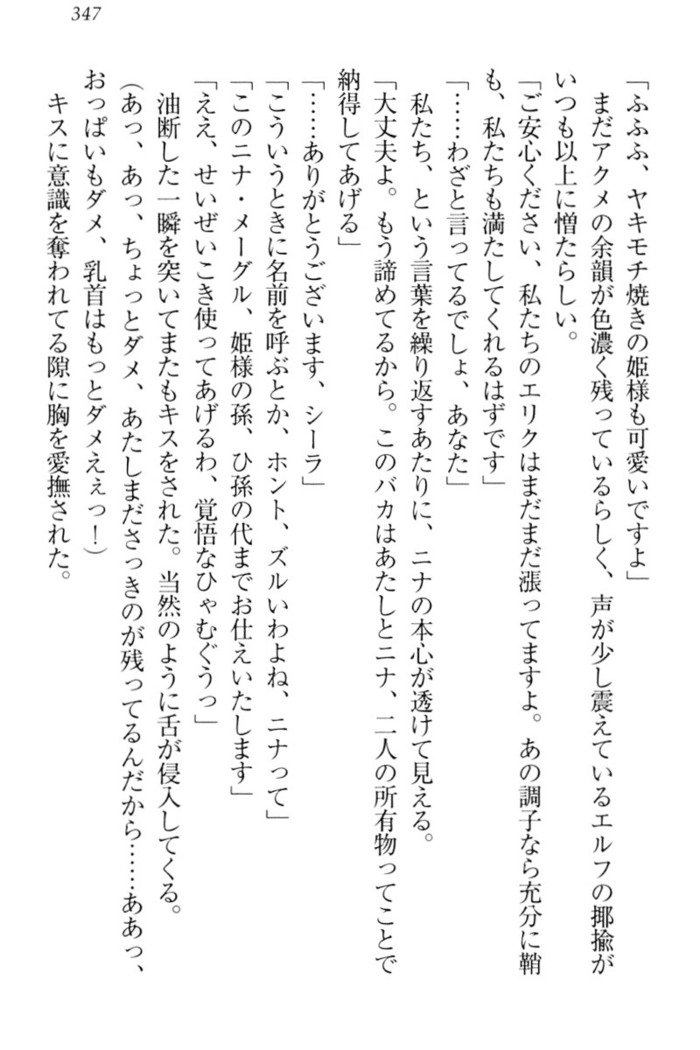 347
「ふふふ、ヤキモチ焼きの姫様も可愛いですよ」
まだアクメの余韻が色濃く残っているらしく、声が少し震えているエルフの揶揄が
いつも以上に憎たらしい。
「ご安心ください、私たちのエリクはまだまだ漲ってますよ。あの調子なら充分に鞘
も、私たちも満たしてくれるはずです」
「……わざと言ってるでしょ、あなた」
私たち、という言葉を繰り返すあたりに、ニナの本心が透けて見える。
「大丈夫よ。もう諦めてるから。このバカはあたしとニナ、二人の所有物ってことで
納得してあげる」
「……ありがとうございます、シーラ」
「こういうときに名前を呼ぶとか、ホント、ズルいわよね、ニナって」
「このニナ・メーグル、姫様の孫、ひ孫の代までお仕えいたします」
「ええ、せいぜいこき使ってあげるわ、覚悟なひゃむぐうっ」
油断した一瞬を突いてまたもキスをされた。当然のように舌が侵入してくる。
(あっ、あっ、ちょっとダメ、あたしまださっきのが残ってるんだから……ああっ、
おっぱいもダメ、乳首はもっとダメえぇっ！)
キスに意識を奪われてる隙に胸を愛撫された。